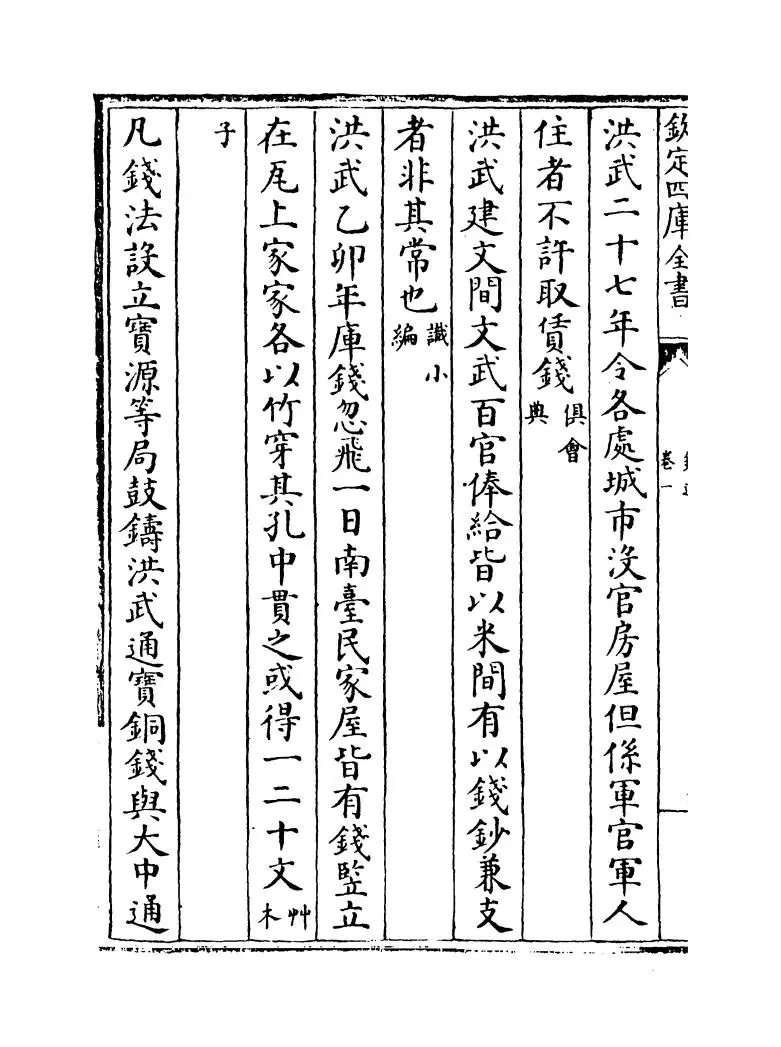 欽定四庫全書
卷一
洪武二十七年令各處城市沒官房屋但係軍官軍人
住者不許取賃錢俱會典
洪武建文間文武百官俸給皆以米間有以錢鈔兼支
者非其常也識小編
洪武乙卯年庫錢忽飛一日南臺民家屋皆有錢竪立
在瓦上家家各以竹穿其孔中貫之或得一二十文艸木
子
凡錢法設立寶源等局鼓鑄洪武通寶銅錢與大中通